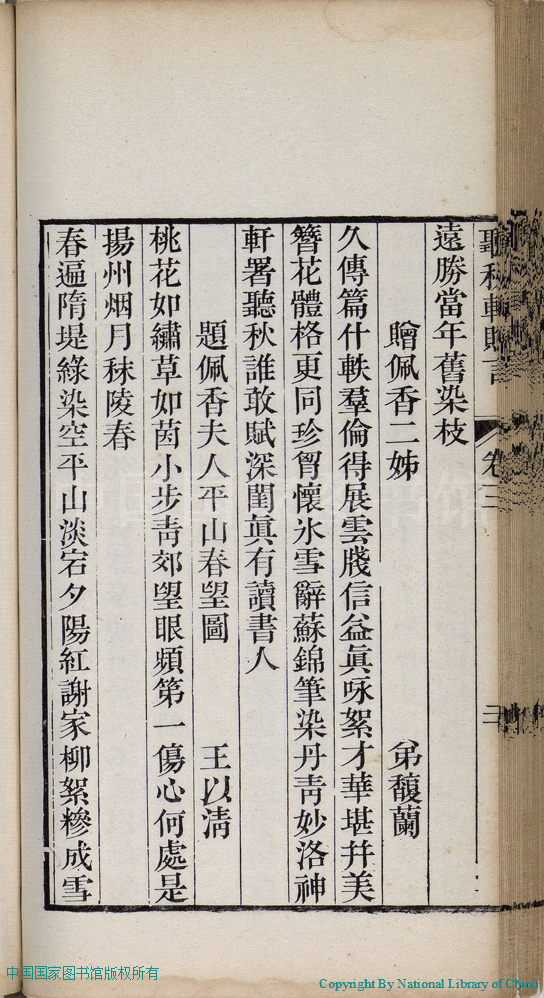 聽秋軒贈言 卷
遠勝當年舊染枝
贈佩香二姊 弟馥蘭
久傳篇什軼羣倫得展雲牋信益眞咏絮才華堪幷美
簪花體格更同珍胷懷氷雪辭蘇錦筆染丹靑妙洛神
軒署聽秋誰敢賦深閨眞有讀書人
題佩香夫人平山春望圖 王以淸
桃花如繡草如茵小步靑郊望眼頻第一傷心何處是
揚州烟月秣陵春
春逼隋堤綠染空平山淡宕夕陽紅謝家柳絮糝成雪
中国国家图书馆版权所有
Copyright By National Library of China